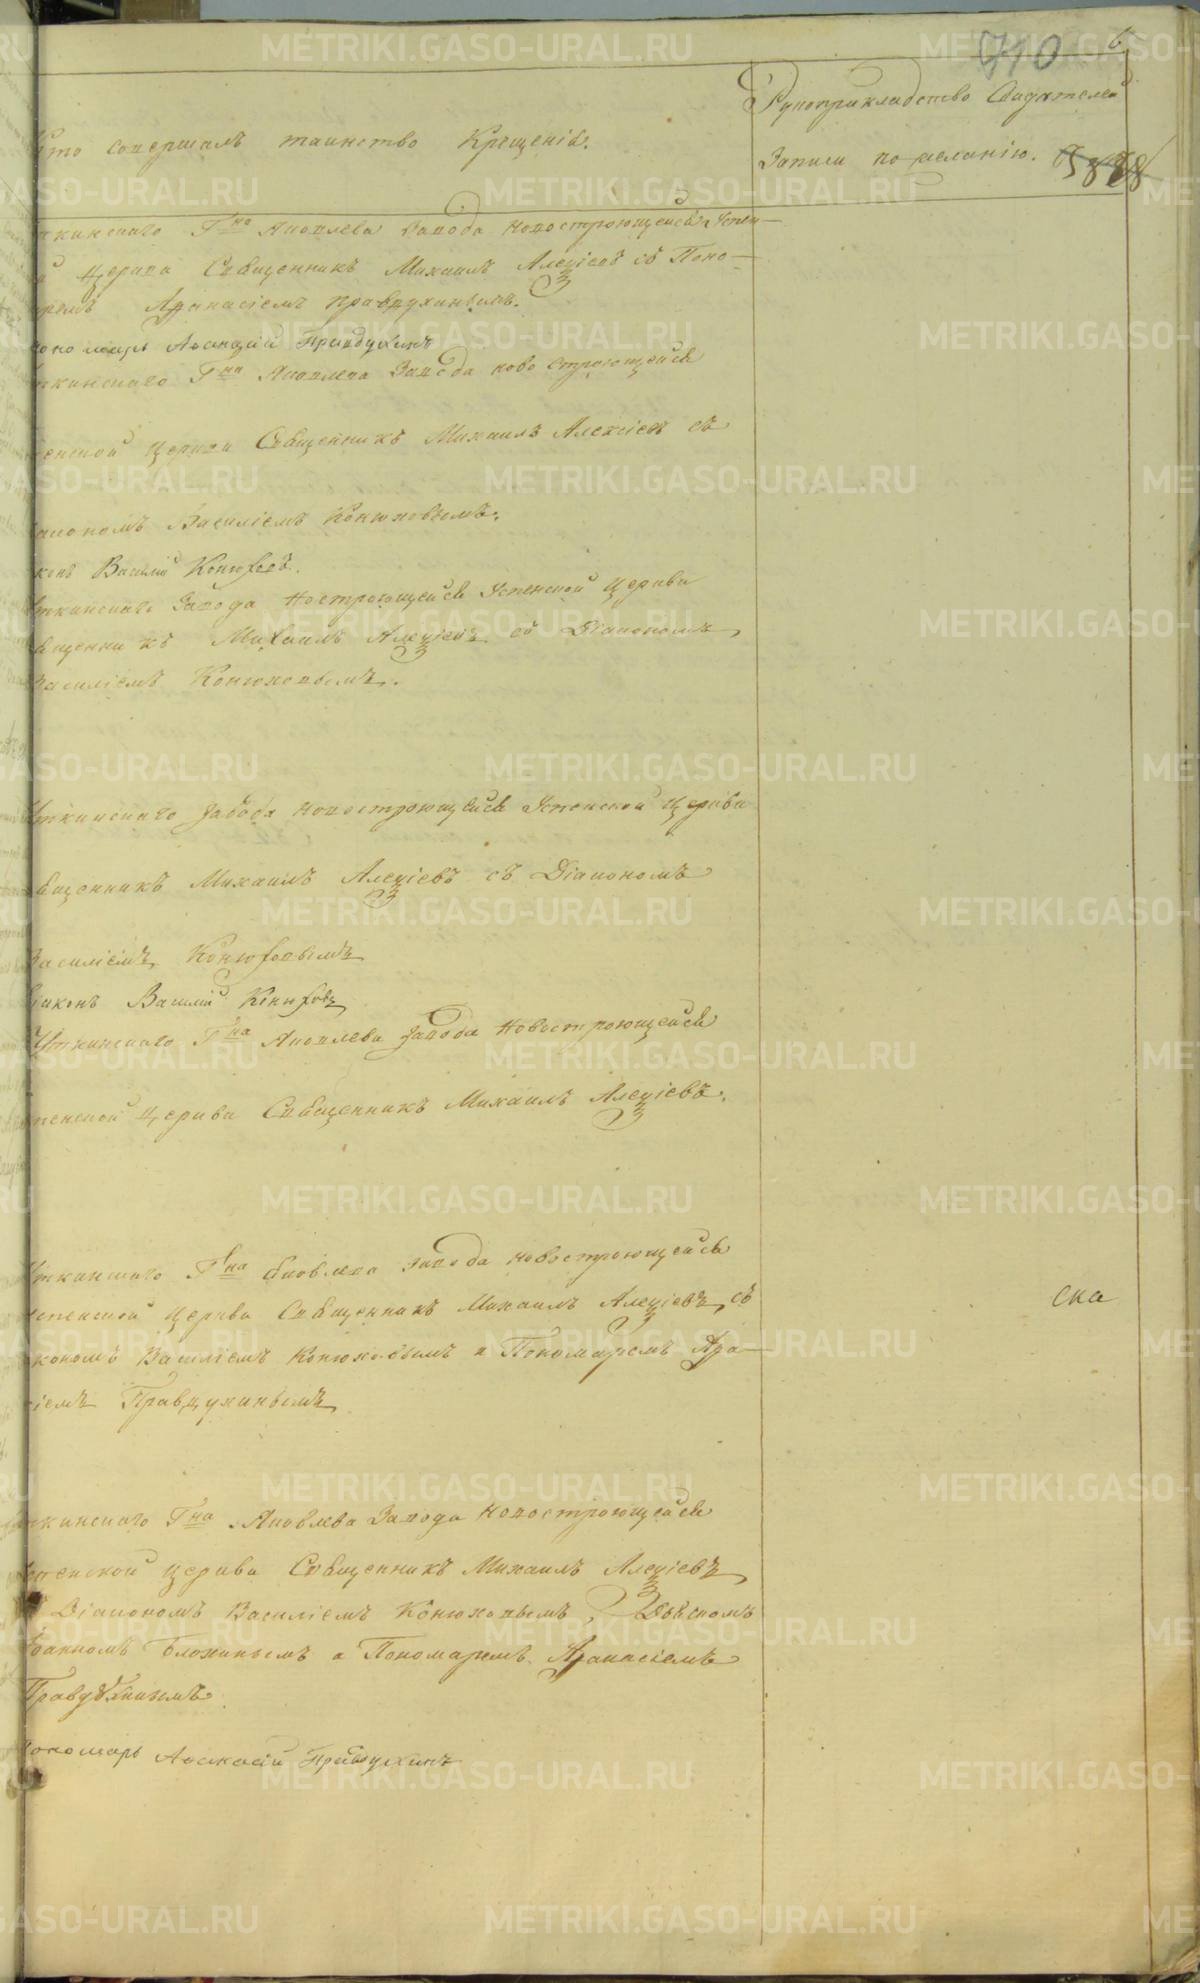 710 6
Рукоприкладство Свидетелей
Кто совершалъ таинство Крещенія.
Записи по желанію. 5888
ткинскаго Гна Яковлева Завода Новостроющейся Успен-
й Церкви Священникъ Михаилъ Алеѯіевъ съ Поно-
аремъ Афанасіемъ Правдухинымъ.
ономарь Афанасий Правдухинъ
ткинскаго Гна Яковлева Завода новостроющейся
пенской Церкви Священникъ Михаилъ Алексіевъ съ
іакономъ Василіемъ Конюховымъ.
конъ Василий Конюховъ.
ткинскаго Завода Ностроющейся Успенской Церкви
вященникъ Михаилъ Алеѯіевъ съ Діакономъ
Василіемъ Конюховымъ.
Уткинскаго Завода Новостроющейся Успенской Церкви
вященникъ Михаилъ Алеѯіевъ съ Діакономъ
Василіемъ Конюховымъ
Диаконъ Василий Конюховъ
Уткинскаго Гна Яковлева Завода Новостроющейся
спенской Церкви Священникъ Михаилъ Алеѯіевъ.
Уткинскаго Гна Яковлева Завода Новостроющейся
спенской Церкви Священникъ Михаилъ Алеѯіевъ, съ
ска
кономъ Василіемъ Конюховымъ и Пономаремъ Афа-
сіемъ Правдухинымъ
ткинскаго Гна Яковлева Завода Новостроющейся
спенской Церкви Священникъ Михаилъ Алеѯіевъ
Діакономъ Василіемъ Конюховымъ, Дьяскомъ
Іоанномъ Блохинымъ и Пономаремъ Афанасіемъ
Правдухинымъ
ономарь Афанасий Правдухинъ
METRIKI.GASO-URAL.RU